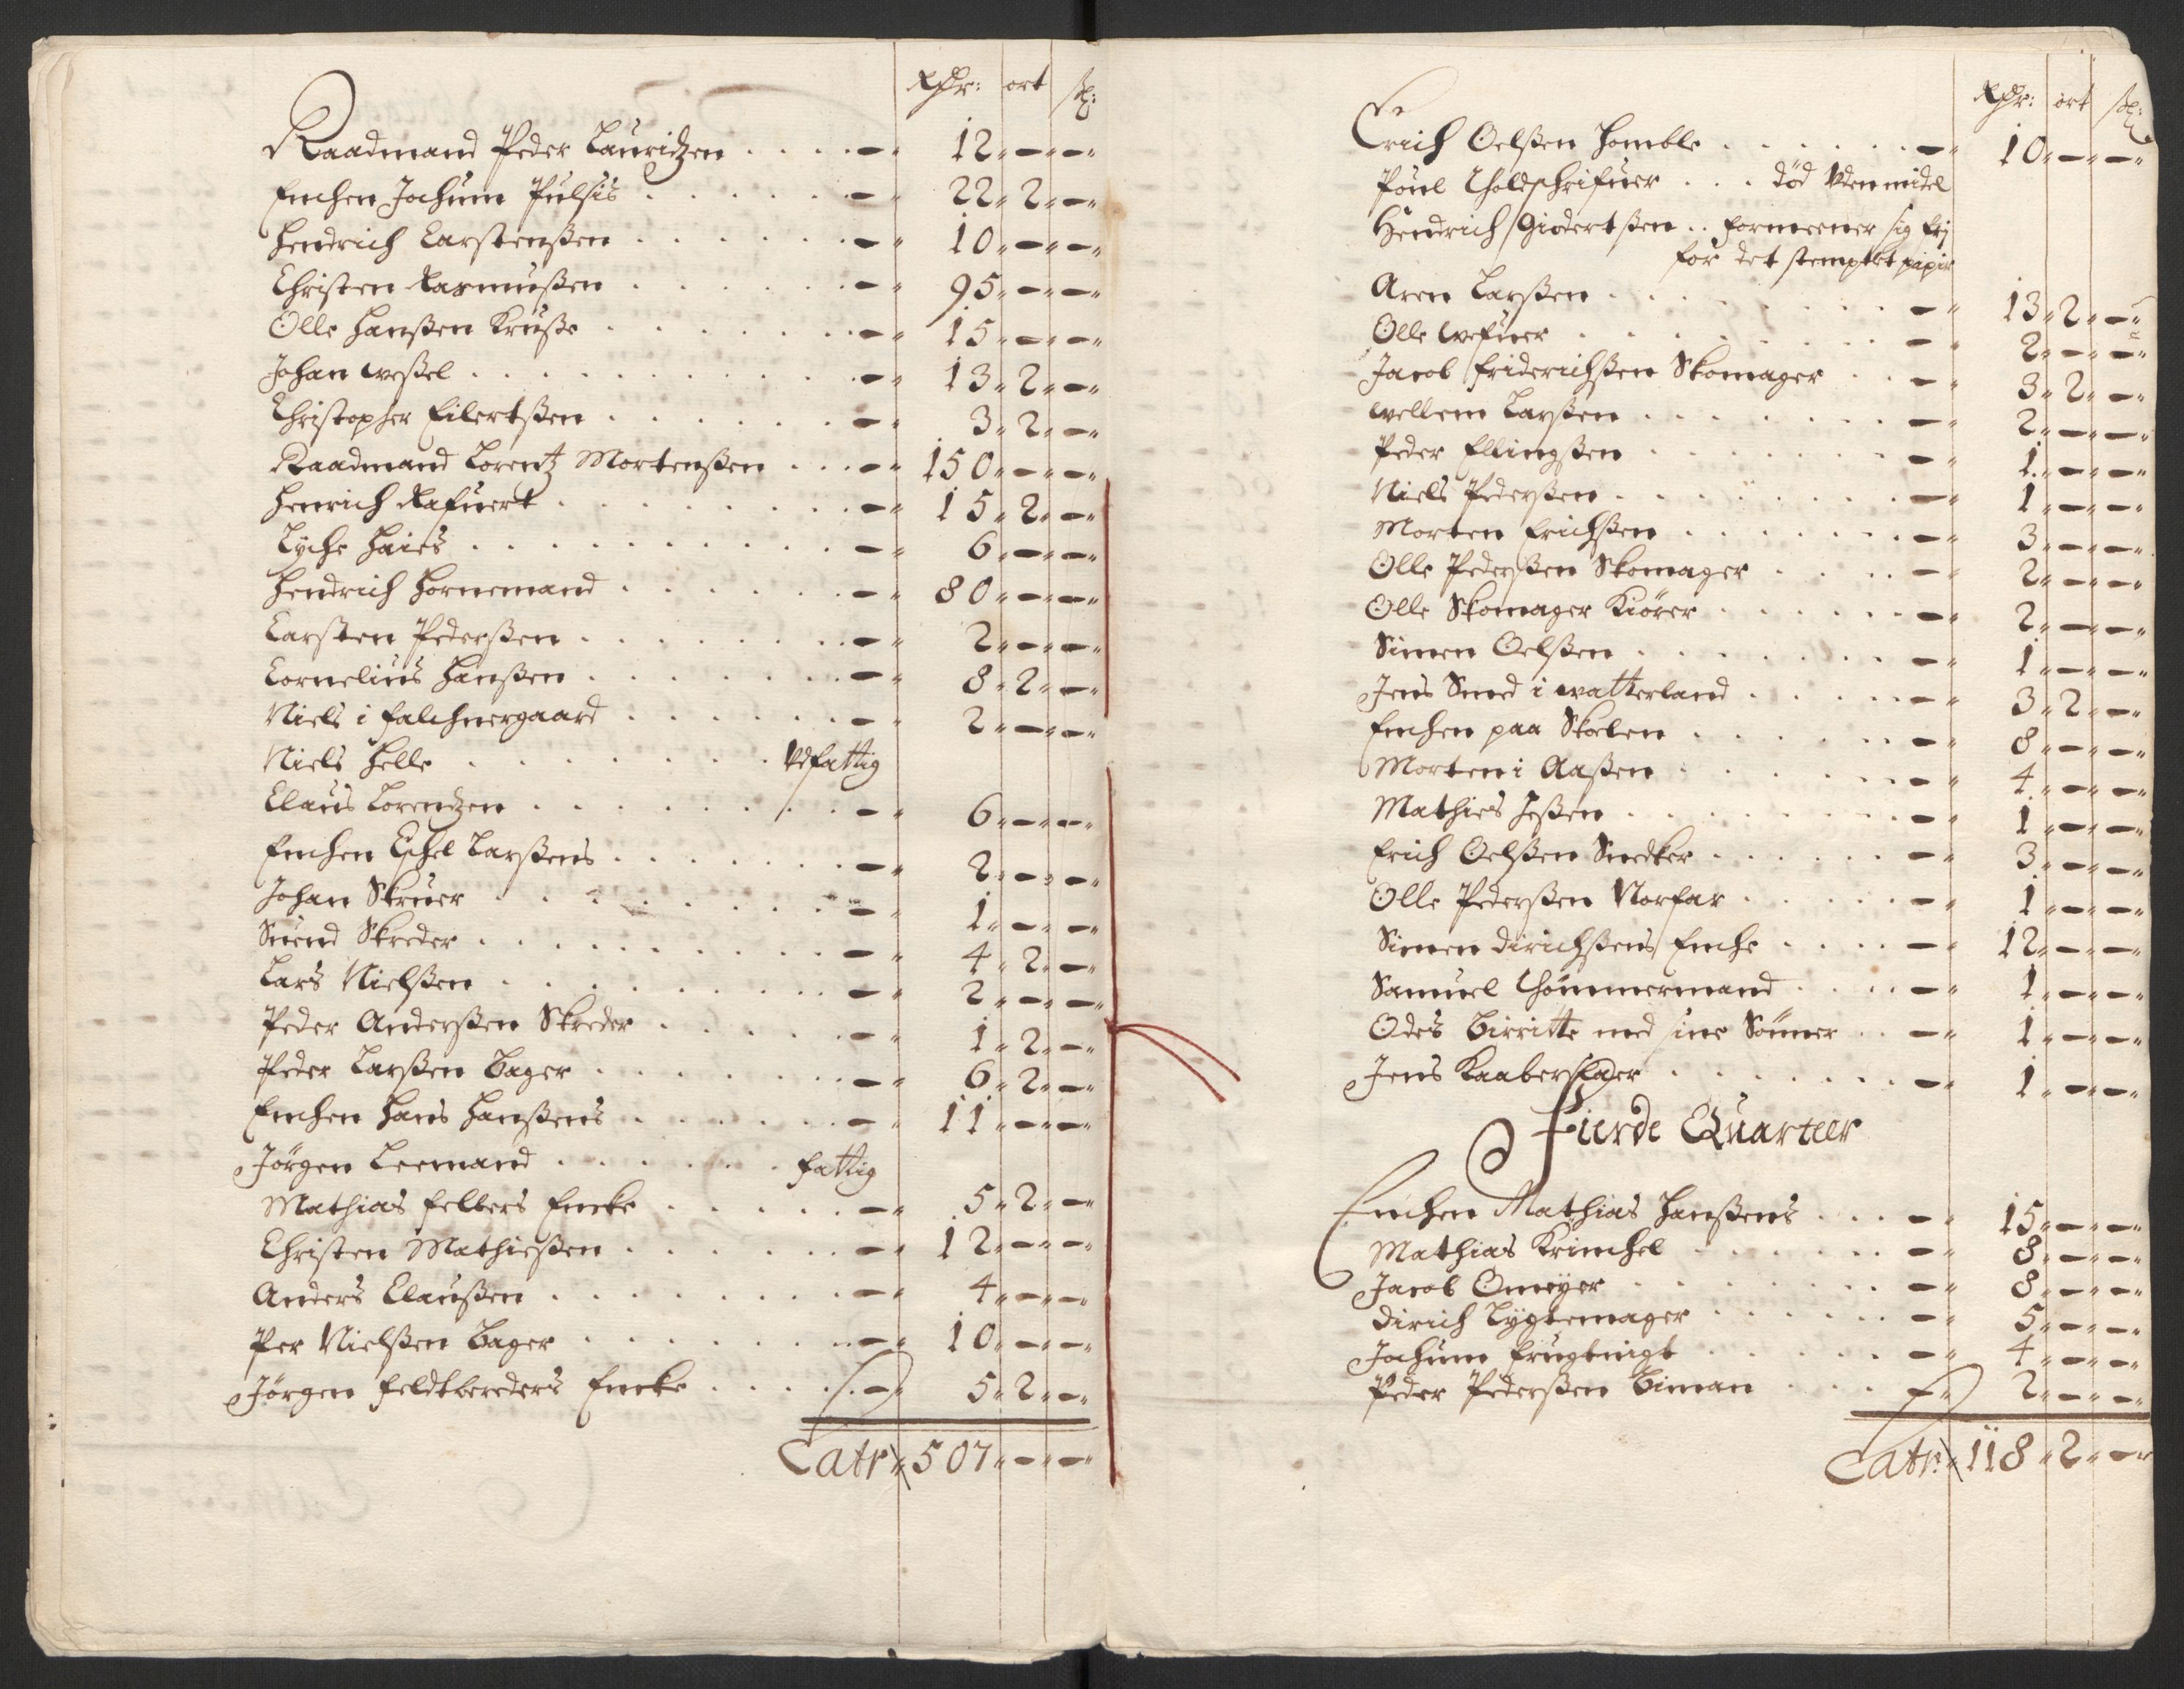 Rdr: ort sk:
Raadmand Peder Lauridzen . . . . — 12 „ — „ — „
Enchen Jochum Pulsis . . . . — 22 „ 2 „ — „
Hendrich Carstenßen . . . . — 10 „ — „ — „
Christen Rasmußen . . . . — 95 „ — „ — „
Olle Hanßen Kruße . . . . — 15 „ — „ — „
Johan Weßel . . . . — 13 „ 2 „ — „
Christopher Eilertßen . . . . — 3 „ 2 „ — „
Raadmand Lorentz Mortenßen . . . — 150 „ — „ — „
Henrich Rafuert . . . . — 15 „ 2 „ — „
Lyche Haies . . . . — 6 „ — „ — „
Hendrich Hornemand . . . . — 80 „ — „ — „
Carsten Pederßen . . . . — 2 „ — „ — „
Cornelius Hanßen . . . . — 8 „ 2 „ — „
Niels i falchnergaard . . . . — 2 „ — „ — „
Niels Helle . . . . Vdfattig
Claus Lorendzen . . . . — 6 „ — „ — „
Enchen Eschel Larßens . . . . — 2 „ — „ — „
Johan Skriuer . . . . — 1 „ — „ — „
Suend Skreder . . . . — 4 „ 2 „ — „
Lars Nielßen . . . . — 2 „ — „ — „
Peder Anderßen Skreder . . . . — 1 „ 2 „ — „
Peder Larßen Bager . . . . — 6 „ 2 „ — „
Enchen Hans Hanßens . . . . — 11 „ — „ — „
Jörgen Leemand . . . . fattig
Mathias felbers Encke . . . . — 5 „ 2 „ — „
Christen Mathießen . . . . — 12 „ — „ — „
Anders Claußen . . . . — 4 „ — „ — „
Per Nielßen Bager . . . . — 10 „ — „ — „
Jörgen feldtbereders Encke . . . . — 5 „ 2 „ — „
Latr „ 507 „ — „ — „
Rdr: ort sk:
Erich Oelßen Homble . . . . — 10 „ — „ — „
Pouel Tholdschrifuer . . . död Uden midel
Hendrich Giödertßen . . formeener sig frj
for det stemplet papir
Aren Larßen . . . . — 13 „ 2 „ — „
Olle wefuer . . . . — 2 „ — „ — „
Jacob friderichßen Skomager . . — 3 „ 2 „ — „
Wellem Larßen . . . . — 2 „ — „ — „
Peder Ellingßen . . . . — 1 „ — „ — „
Niels Pederßen . . . . — 1 „ — „ — „
Morten Erichßen . . . . — 3 „ — „ — „
Olle Pederßen Skomager . . . . — 2 „ — „ — „
Olle Skomager Kiörer . . . . — 2 „ — „ — „
Simen Oelßen . . . . — 1 „ — „ — „
Jens Smed i watterland . . . . — 3 „ 2 „ — „
Enchen paa Skolen . . . . — 8 „ — „ — „
Morten i Aaßen . . . . — 4 „ — „ — „
Mathies Jeßen . . . . — 1 „ — „ — „
Erich Oelßen Snedker . . . . — 3 „ — „ — „
Olle Pederßen Norfar . . . . — 1 „ — „ — „
Simen dirichßens Enche . . . . — 12 „ — „ — „
Samuel Thömmermand . . . . — 1 „ — „ — „
Odes Birritte med sine Sönner . . — 1 „ — „ — „
Jens Kaaberslager . . . . — 1 „ — „ — „
Fierde Quarteer
Enchen Mathias Hanßens . . . — 15 „ — „ — „
Mathias Krinchel . . . . — 8 „ — „ — „
Jacob Omeÿer . . . . — 8 „ — „ — „
dirich Lÿgtemager . . . . — 5 „ — „ — „
Jochum frugtnigt . . . . — 4 „ — „ — „
Peder Pederßen Biman . . . . — 2 „ — „ — „
Latr: „ 118 „ 2 „ — „